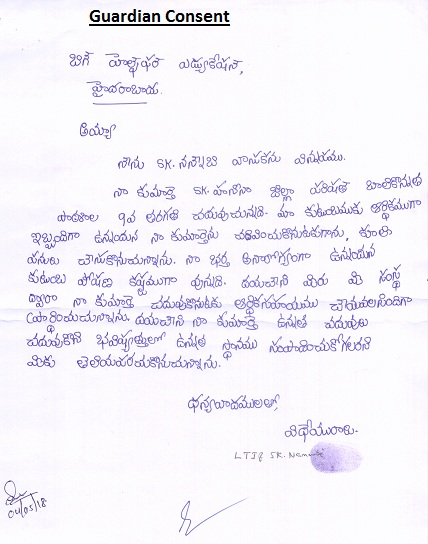 Guardian Consent
బిగ్ హెల్ప్ ఫర్ ఎడ్యుకేషన్,
హైదరాబాద్.
అయ్యా
నేను SK. నన్నేబి వ్రాసుకొను విన్నపము.
నా కుమార్తె SK. హసీనా జిల్లా పరిషత్ బాలికోన్నత
పాఠశాల 9వ తరగతి చదువుచున్నది. మా కుటుంబముకు ఆర్థికముగా
ఇబ్బందిగా ఉన్నయన నా కుమార్తెను చదివించుకొనుటకుగాను, కూలి
పనులు చేసుకొనుచున్నాను. నా భర్త అనారోగ్యంగా ఉన్నయన
కుటుంబ పోషణ కష్టముగా వున్నది. దయచేసి మీరు మీ సంస్థ
ద్వారా నా కుమార్తె చదువుకొనుటకు ఆర్థికసహాయము చేయవలసిందిగా
ప్రార్థించుచున్నాను. దయచేసి నా కుమార్తె ఉన్నత చదువులు
చదువుకొని భవిష్యత్తులో ఉన్నత స్థానము సంపాదించుకోగలదని
మీకు తెలియపరచుకొనుచున్నాను.
ధన్యవాదములతో,
విధేయురాలు.
LTI of SK.
04/05/18